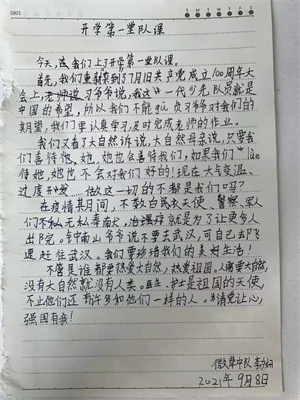 DATE
S M T W T F S
开学第一堂队课
今天,我们上了开学第一堂队课。
首先,我们重新来到了7月1日共产党成立100周年大
会上,老师说:习爷爷说,我这一代少先队员就是
中国的希望,所以我们不能gū负习爷爷对我们的
期望,我们要认真学习,及时完成老师的作业。
我们又看了大自然诉说,大自然母亲说,只要我
们善待她,她也会善待我们,如果我们
待她,她也不会对我们好的!现在大气变温、
过度开发……做这一切的不都是我们吗?
在疫情其月间,不敢白民衣天使、警察、军人
们不私无私奉献,就是为了让更多人
出户院。钟南山爷爷说不要去武汉,可自己去
赶往武汉。我们要珍惜我们的美好生活!
不管是谁都要热爱大自然,热爱祖国,人需要大自然,
没有大自然就没有人类。医生、护士是祖国的天使,
不止他们还有许多和他们一样的人。请党让心,
强国有我!
中队 李
2021年9月8日